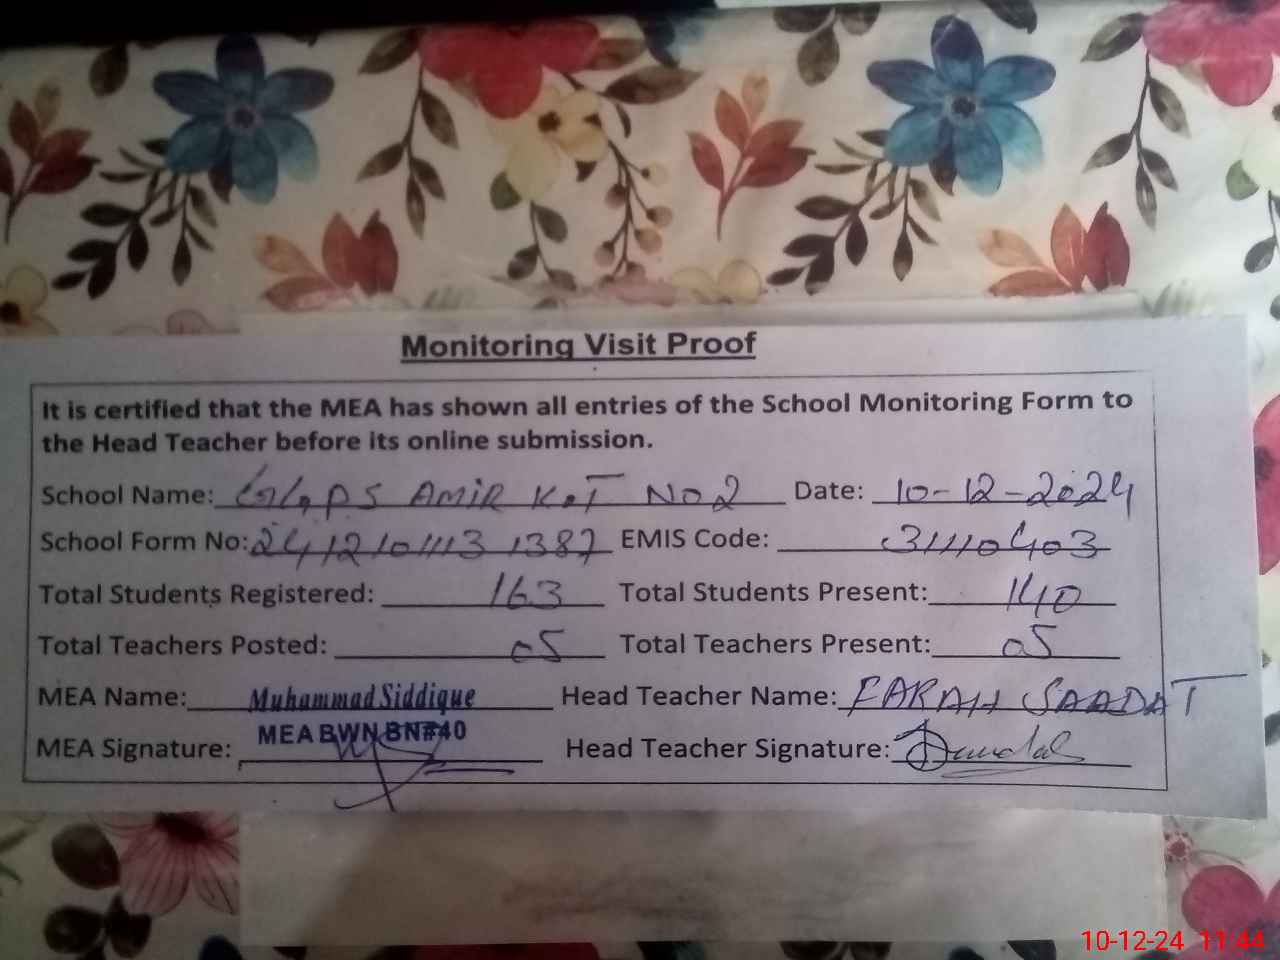 Monitoring Visit Proof
It is certified that the MEA has shown all entries of the School Monitoring Form to
the Head Teacher before its online submission.
School Name: GGPS AMIR KOT NO 2 Date: 10-12-2024
School Form No: 241210111131387 EMIS Code: 31110403
Total Students Registered: 163 Total Students Present: 140
Total Teachers Posted: 05 Total Teachers Present: 05
MEA Name: Muhammad Siddique Head Teacher Name: FARAH SAADAT
MEA BWN BN#40
MEA Signature: Head Teacher Signature:
10-12-24 11:44